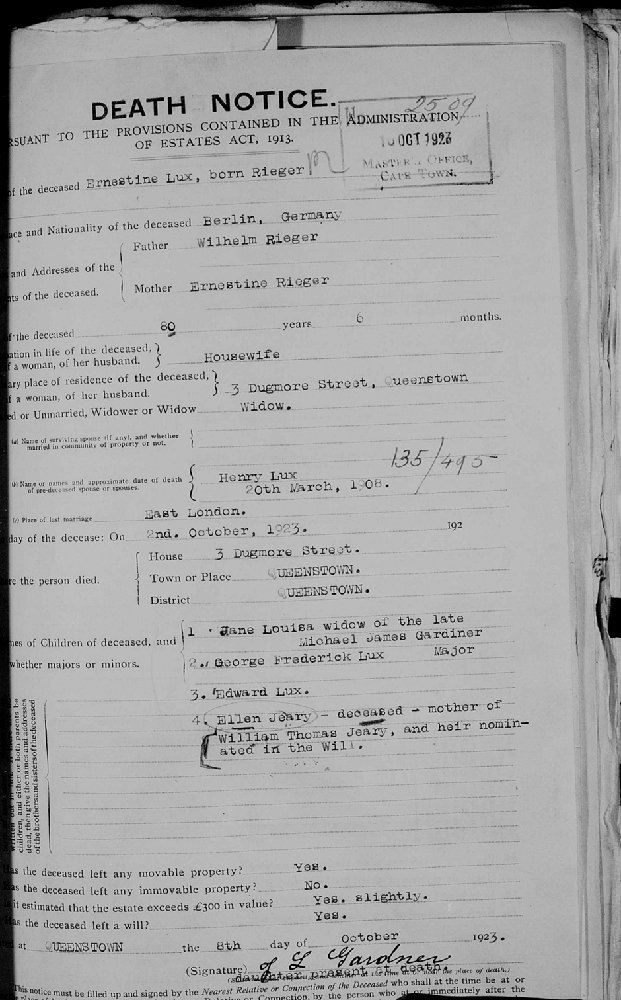 DEATH NOTICE.
RSUANT TO THE PROVISIONS CONTAINED IN THE ADMINISTRATION
OF ESTATES ACT, 1913.
2509
OCT 1923
MASTER OFFICE,
CAPE TOWN.
of the deceased Ernestine Lux, born Rieger
ace and Nationality of the deceased Berlin, Germany
and Addresses of the
ts of the deceased.
Father Wilhelm Rieger
Mother Ernestine Rieger
f the deceased 80 years 6 months.
ation in life of the deceased,
f a woman, of her husband. Housewife
ary place of residence of the deceased,
f a woman, of her husband. 3 Dugmore Street, Queenstown
ed or Unmarried, Widower or Widow Widow.
(a) Name of surviving spouse (if any), and whether
married in community of property or not.
135/495
(b) Name or names and approximate date of death
of pre-deceased spouse or spouses.
Henry Lux
20th March, 1908.
(c) Place of last marriage East London.
day of the decease: On 2nd. October, 1923. 192
re the person died.
House 3 Dugmore Street.
Town or Place QUEENSTOWN.
District QUEENSTOWN.
mes of Children of deceased, and
whether majors or minors.
1 Jane Louisa widow of the late
Michael James Gardiner
2. George Frederick Lux Major
3. Edward Lux.
4. Ellen Jeary - deceased - mother of
William Thomas Jeary, and heir nomin-
ated in the Will.
children, and either or both parents be
dead, then give the names and addresses
of the brothers and sisters of the deceased
as the deceased left any movable property? Yes.
as the deceased left any immovable property? No.
it estimated that the estate exceeds £300 in value? Yes. slightly.
as the deceased left a will? Yes.
at QUEENSTOWN the 8th day of October 1923.
(Signature) J L Gardner
daughter present at death.
This notice must be filled up and signed by the Nearest Relative or Connection of the Deceased who shall at the time be at or
Relative or Connection, by the person who at or immediately after the